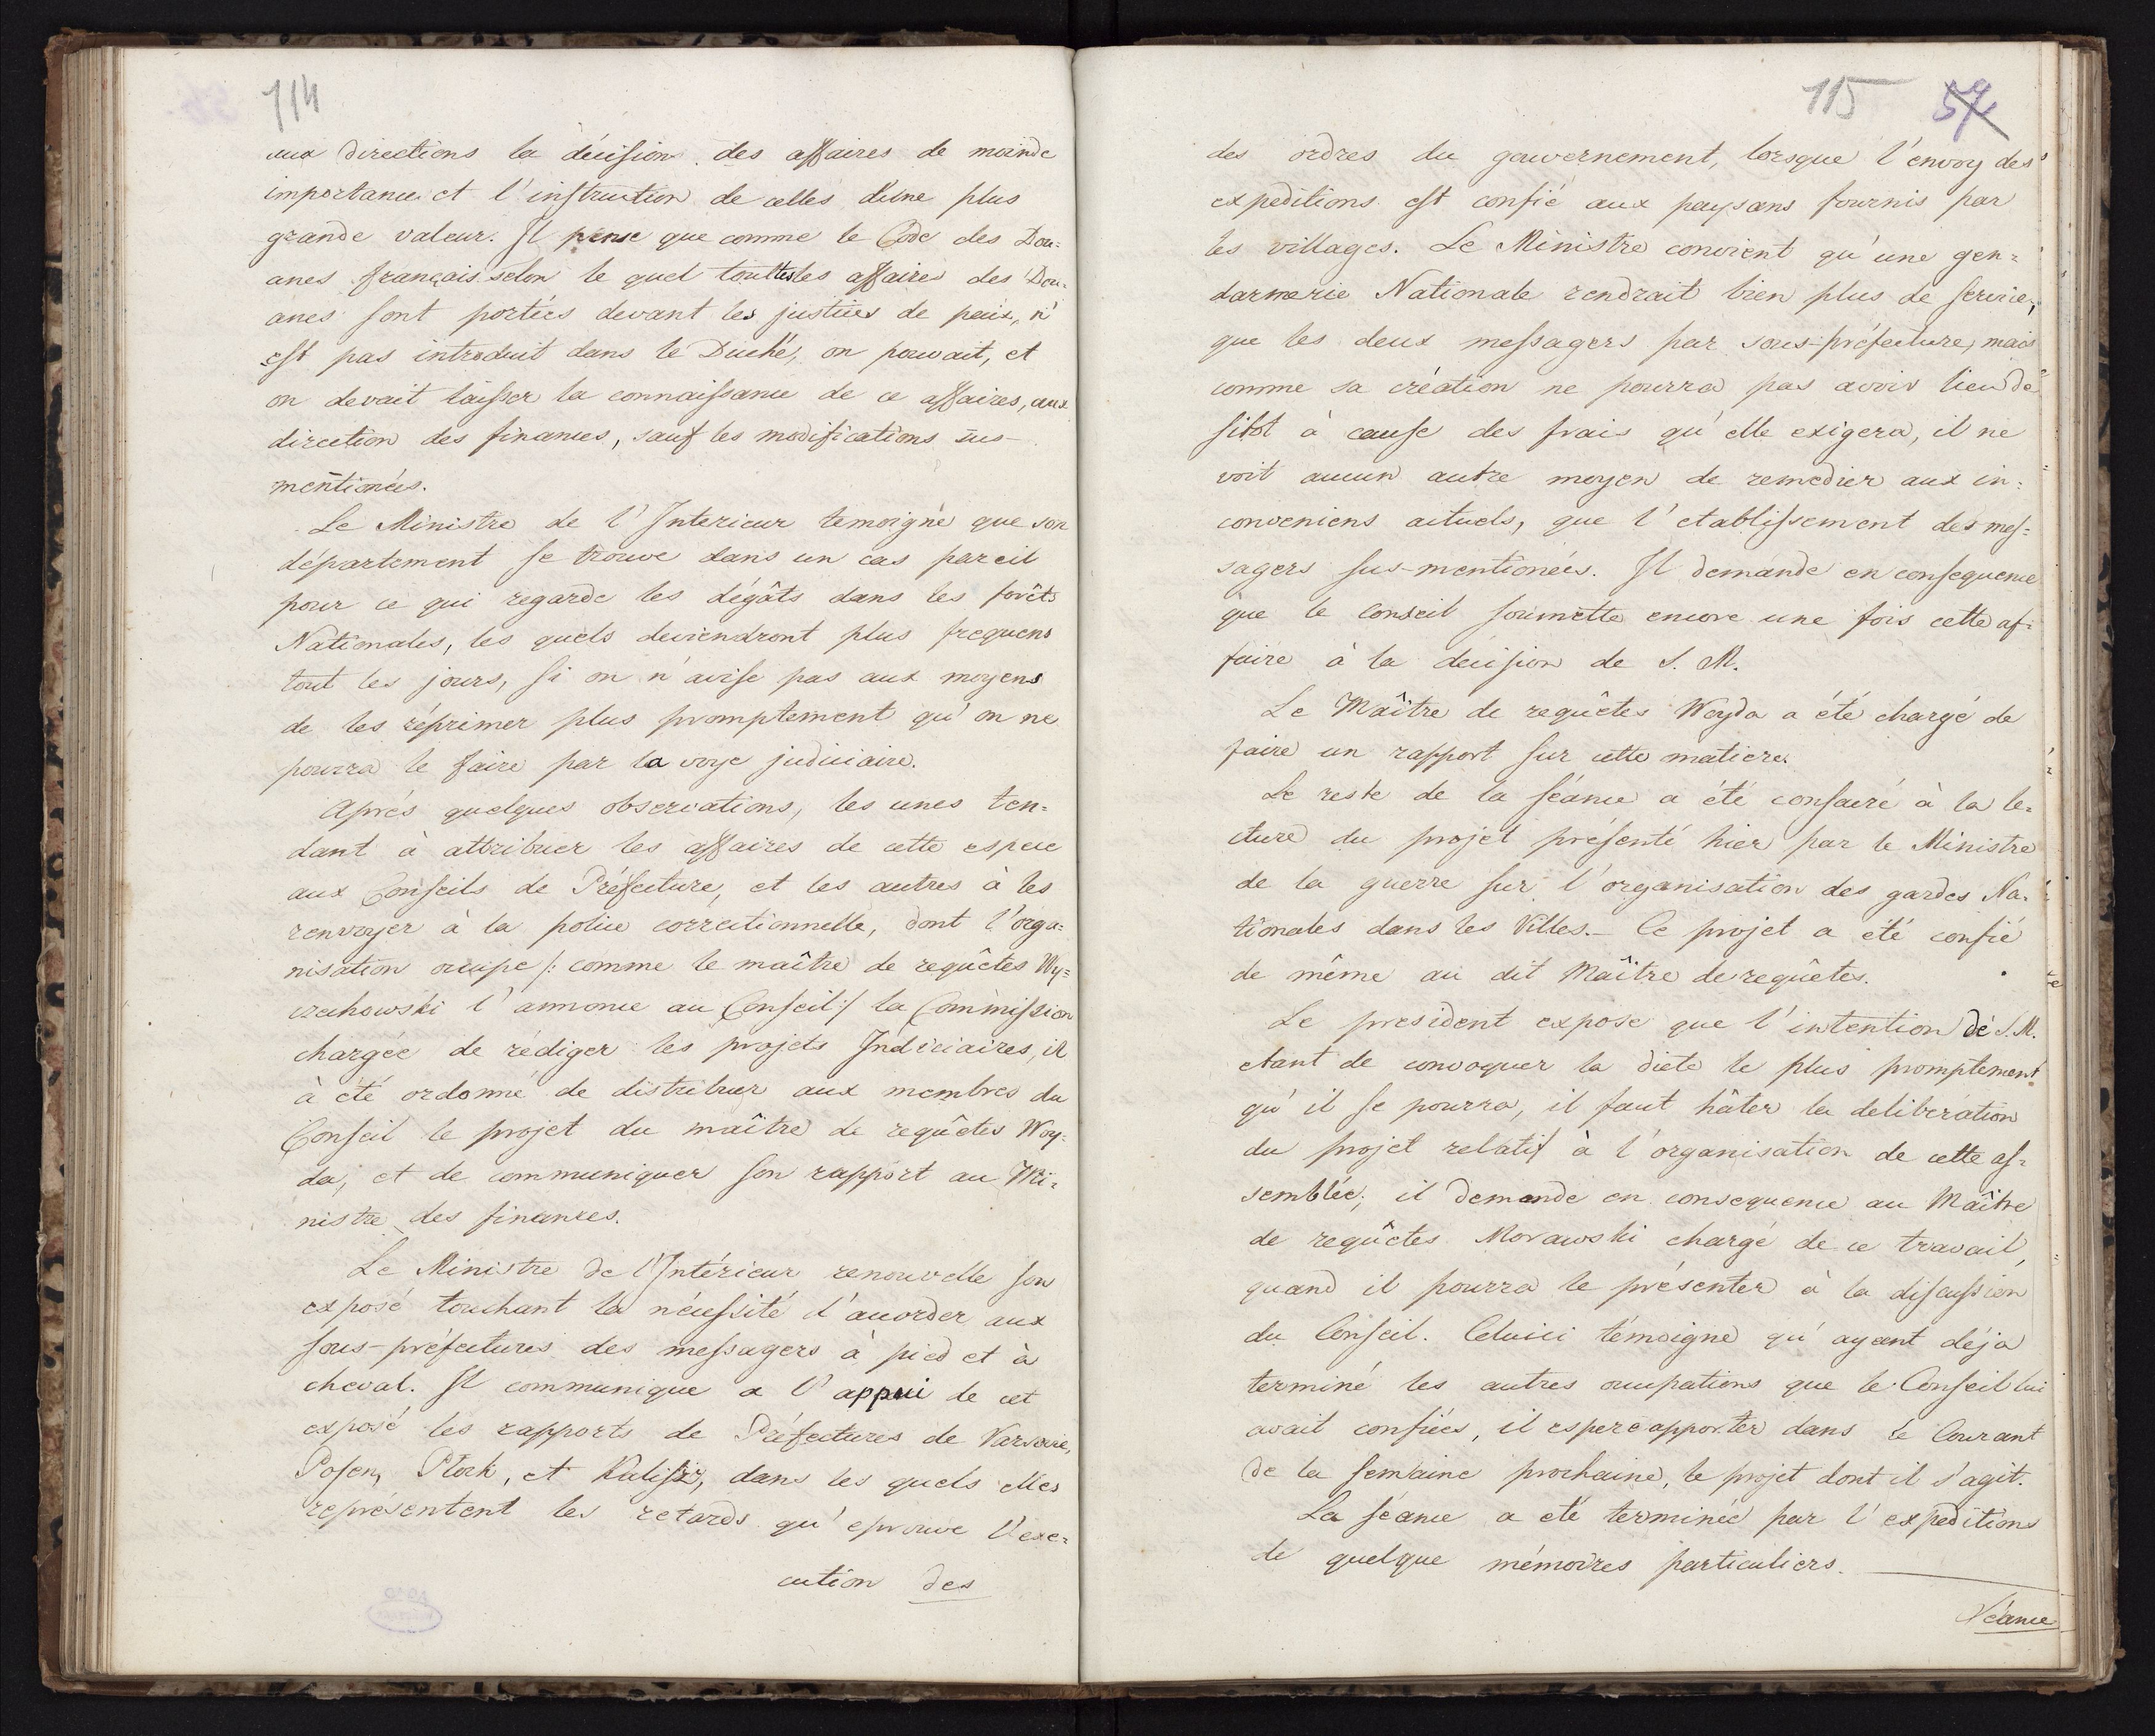 114
aux directions la décision des affaires de moinde
importance et l'instruction de celles d'une plus
grande valeur. Il pense que comme le Code des Dou=
anes français selon le quel touttes les affaires des Dou=
anes sont portées devant les justices de paix, n'
est pas introduit dans le Duché, on pouvait, et
on devait laisser la connaissance de ce affaires, aux
direction des finances, sauf les modifications sus-
mentionées.
Le Ministre de l'Interieur temoigne que son
département se trouve dans un cas pareil
pour ce qui regarde les dégâts dans les forêts
Nationales, les quels deviendront plus frequens
tout les jours, si on n'avise pas aux moyens
de les réprimer plus promptement qu'on ne
pourra le faire par la voye judiciaire.
Aprés quelques observations, les unes ten=
dant à attribuer les affaires de cette espece
aux Conseils de Préfecture, et les autres à les
renvoyer à la police correctionnelle, dont l'orga=
nisation occupe /: comme le maître de requêtes Wy=
czechowski l'annonce au Conseil :/ la Commission
chargée de rédiger les projets Judiciaires, il
à été ordonné de distribuer aux membres du
Conseil le projet du maître de requêtes Woy=
da, et de communiquer son rapport au Mi=
nistre des finances.
Le Ministre de l'Intérieur renouvelle son
exposé touchant la nécessité d'accorder aux
sous-préfectures des messagers à pied et à
cheval. Il communique a l'appui de cet
exposé les rapports de Préfectures de Varsovie,
Posen, Plock, et Kalisz, dans les quels elles
représentent les retards qu'eprouve l'exe=
cution des
115 57
des ordres du gouvernement, lorsque l'envoy des
expeditions est confié aux paysans fournis par
les villages. Le Ministre convient qu'une gen=
darmerie Nationale rendrait bien plus de service,
que les deux messagers par sous-préfecture, mais
comme sa création ne pourra pas avoir lieu de
sitôt à cause des frais qu'elle exigera, il ne
voit aucun autre moyen de remedier aux in=
conveniens actuels, que l'etablissement des mes=
sagers sus-mentionées. Il demande en consequence
que le Conseil soumette encore une fois cette af=
faire à la décision de S. M.
Le Maître de requêtes Woyda a été chargé de
faire un rapport sur cette matiere.
Le reste de la séance a été consacré à la le=
cture du projet présenté hier par le Ministre
de la guerre sur l'organisation des gardes Na=
tionales dans les Villes.- Ce projet a été confié
de même au dit Maître de requêtes.
Le president expose que l'intention de S. M.
etant de convoquer la diete le plus promptement
qu'il se pourra, il faut hâter la deliberation
du projet relatif à l'organisation de cette as=
semblée; il demande en consequence au Maître
de requêtes Morawski chargé de ce travail,
quand il pourra le présenter à la discussion
du Conseil. Celuici témoigne qu'ayant déja
terminé les autres occupations que le Conseil lui
avait confiées, il espere apporter dans le Courant
de la semaine prochaine, le projet dont il s'agit.
La séance a eté terminée par l'expeditions
de quelque mémoires particuliers.
Séance